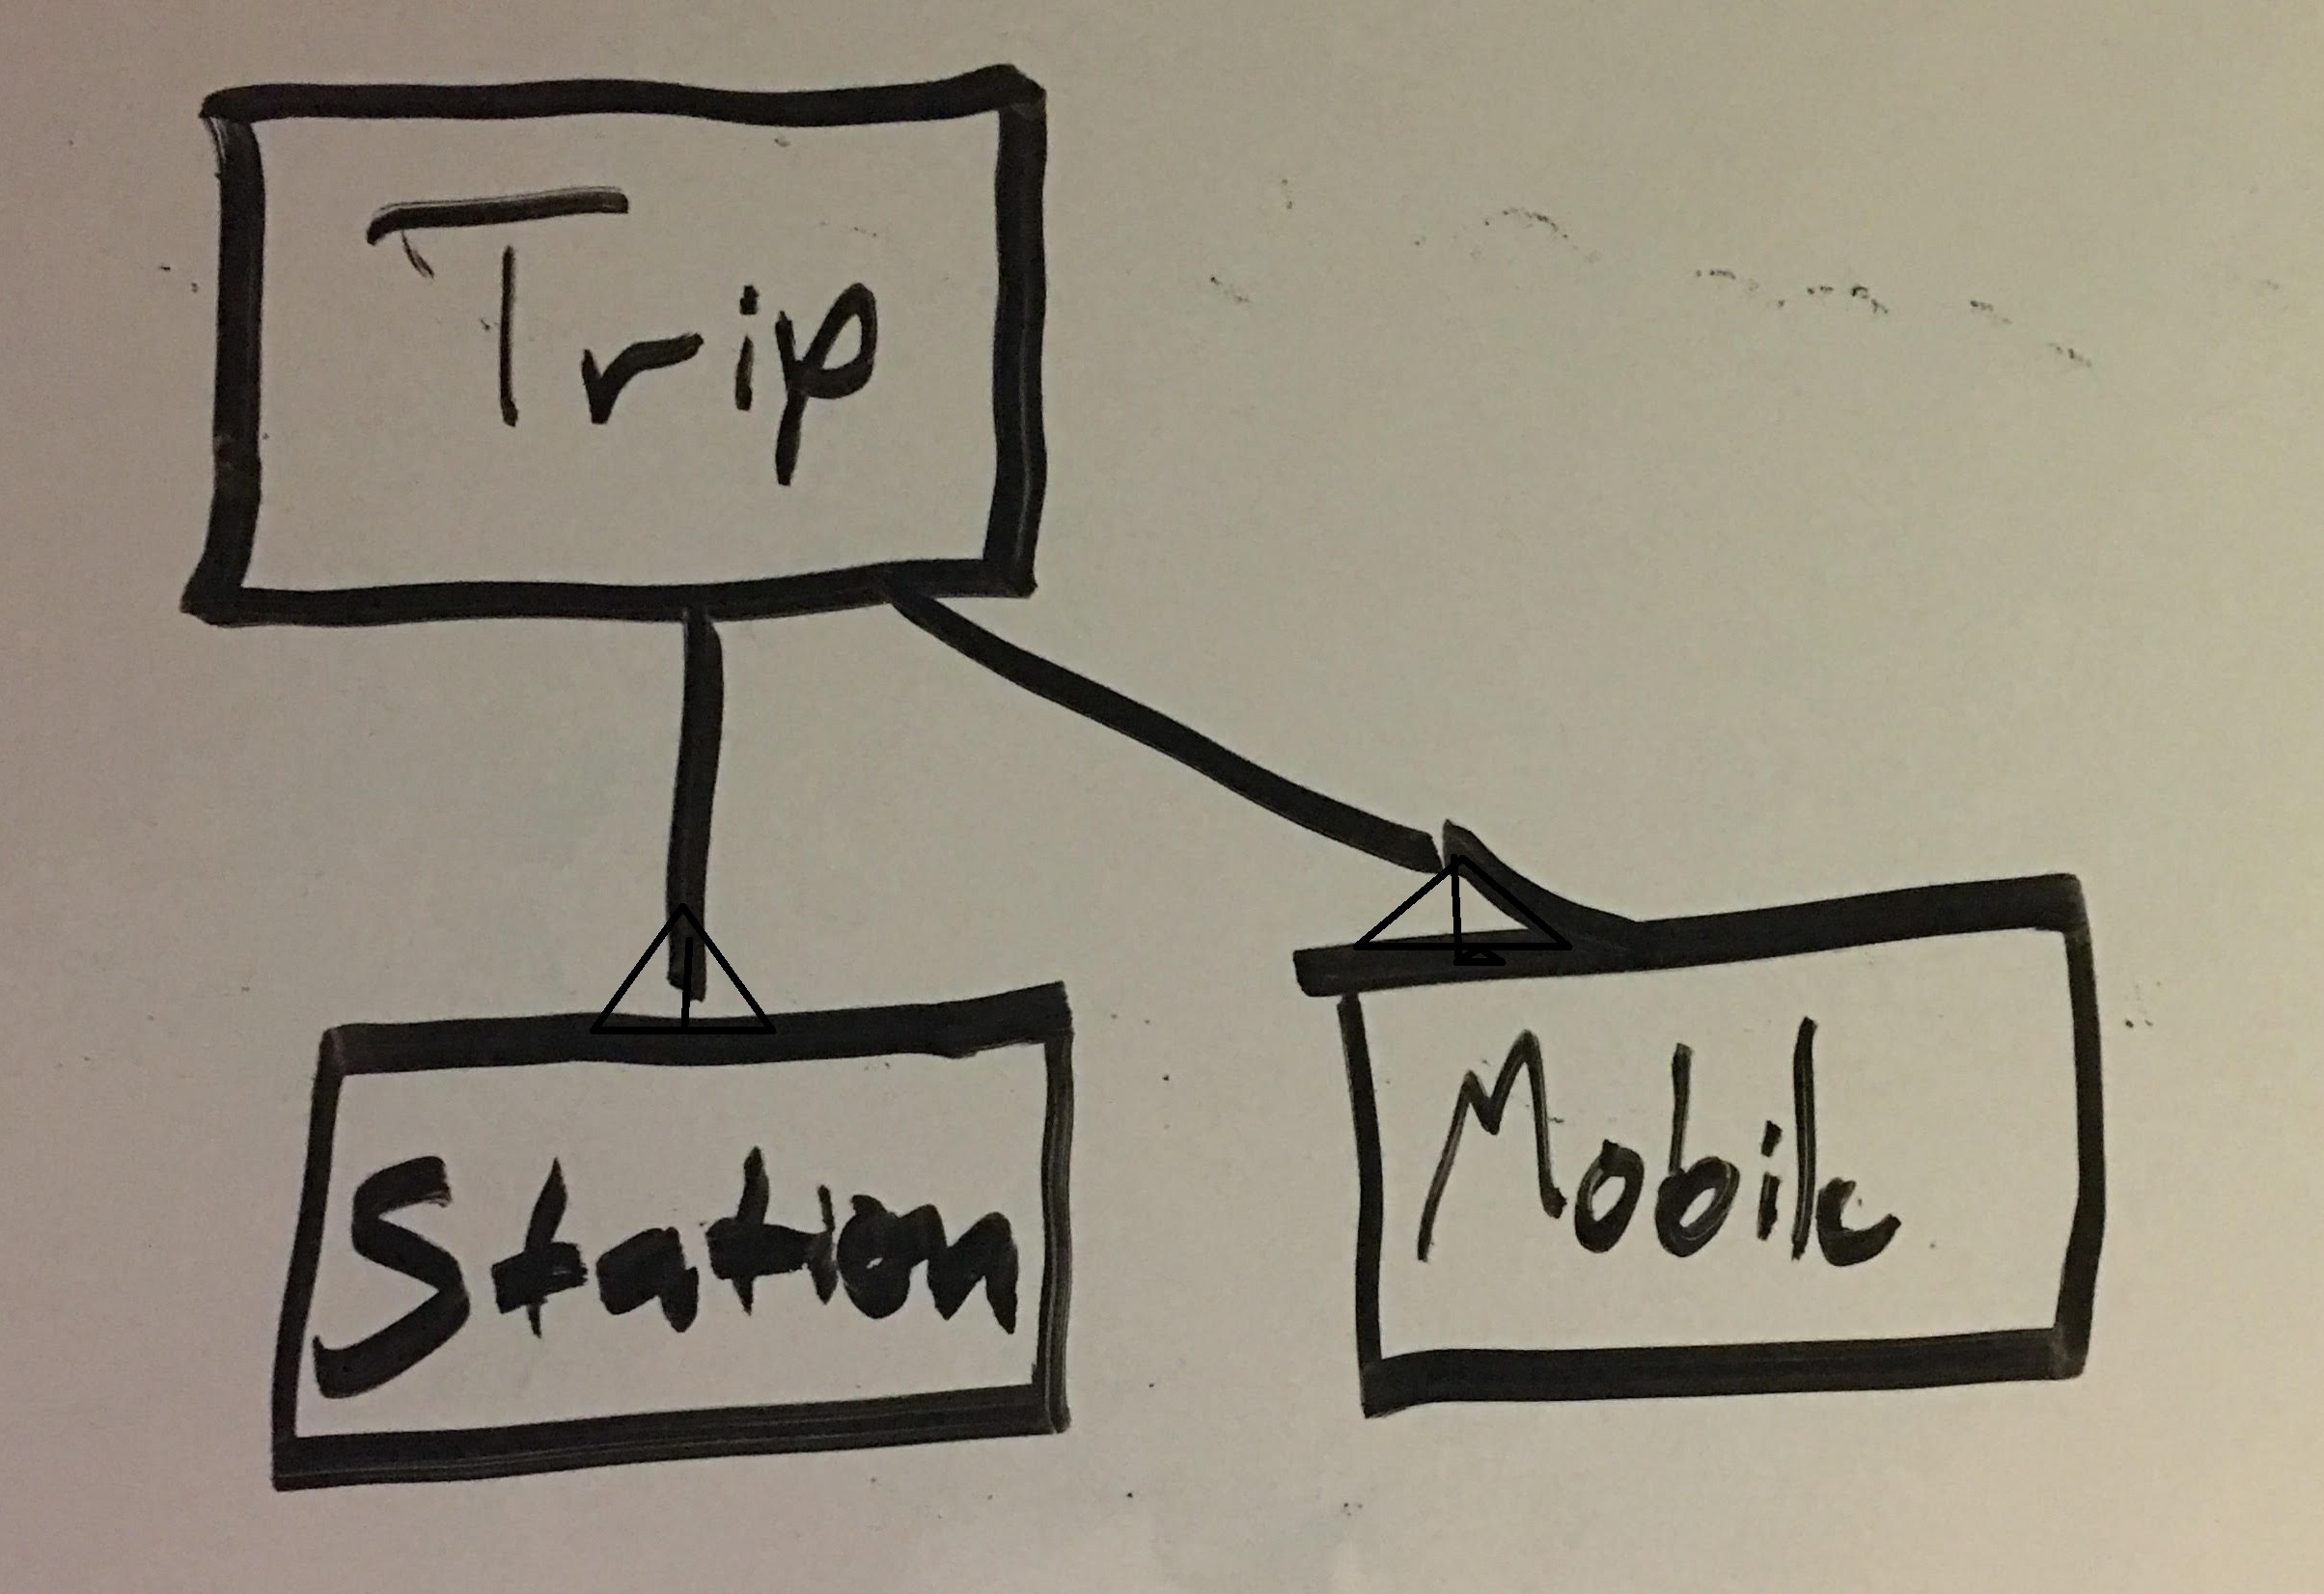 Trip
Station
Mobile